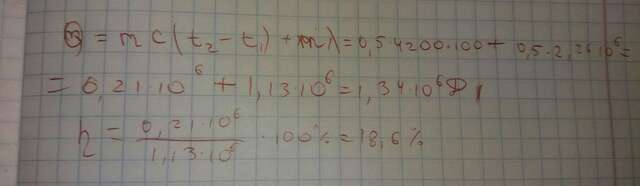 Q = mc(t₂ - t₁) + mλ = 0,5 4200·100 + 0,5·2,26·10⁶ =
= 0,21·10⁶ + 1,13·10⁶ = 1,34·10⁶ Д
η = 0,21·10⁶ / 1,13·10⁶ · 100% = 18,6%